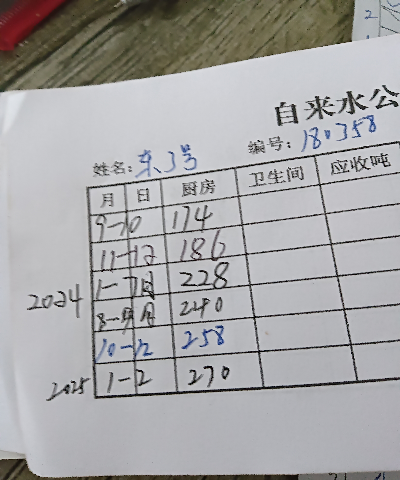 自来水公
姓名: 东3号 编号: 180358
月 日 厨房 卫生间 应收吨
9-10 174
11-12 186
2024 1-7月 228
8-9月 240
10-12 258
2025 1-2 270